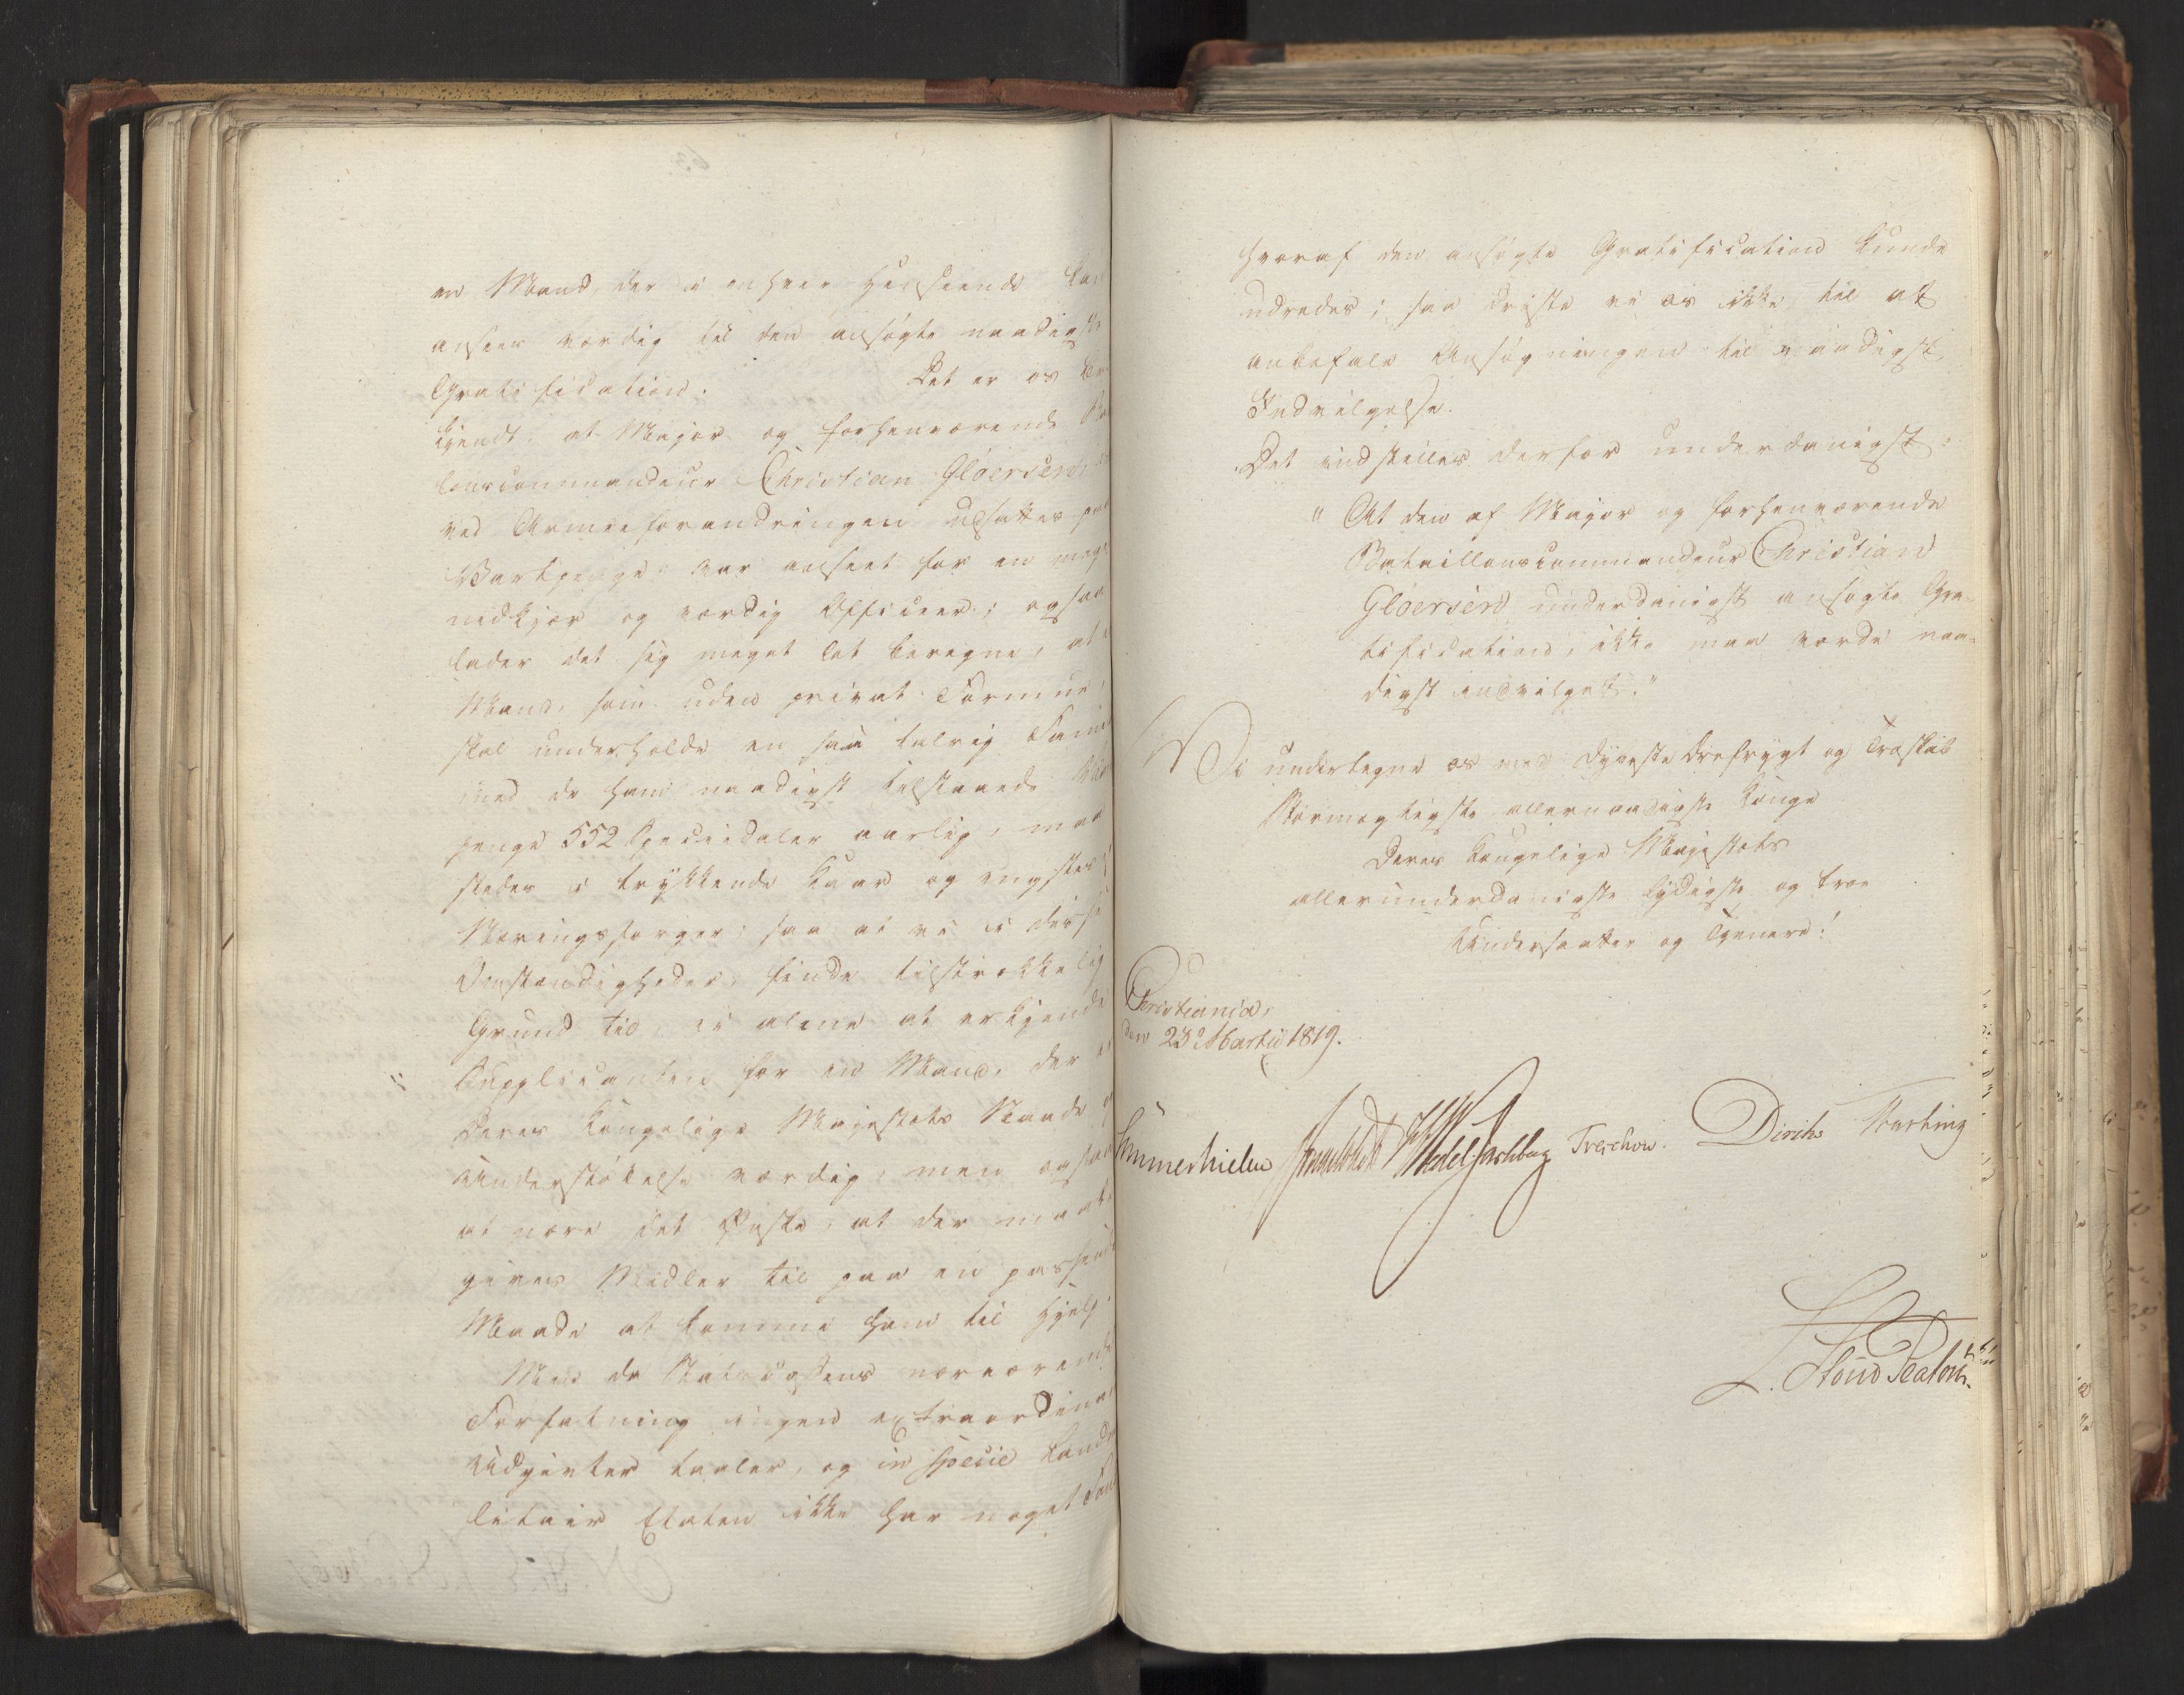 en Mand, der i enhver Henseende kan
ansees værdig til den ansøgte naadigste
Gratification. Det er os be-
kjendt, at Major og forhenværende Ba
lonscommandeur Christian Gløersen
ved Armeeforandringen udsattes paa
Vartpenge var anseet for en meg
nidkjær og værdig Officeer; ogsaa
lader det sig meget let beregne, at
Mand, som uden privat Formue
skal underholde en saa talrig Fami
med de ham naadigst tilstaaede
penge 552 Speciedaler aarlig, maa
stedes i trykkende Kaar og ængstes
Næringssorger; saa at vi i disse
Omstændigheder, finde tilstrækkelig
Grund til, ei alene at erkjende
Supplicanten for en Mand, der er
Deres Kongelige Majestæts Naade og
Understøttelse værdig, men ogsaa
at nære det Ønske, at der maatte
gives Midler til paa en passende
Maade at komme ham til Hjelp.
Men da Statscassens nærværende
Forfatning ingen extraordinai
Udgivter taaler, og in specie Land
litair Etaten ikke har noget Fon
hvoraf den ansøgte Gratification kunde
udredes; saa driste vi os ikke til at
anbefale Ansøgningen til naadigst
Indvilgelse.
Det indstilles derfor underdanigst:
" At den af Major og forhenværende
Bataillonscommandeur Christian
Gløersen underdanigst ansøgte Gra-
tification, ikke maa vorde naa-
digst indvilget."
Vi undertegne os med dybeste Ærefrygt og Troskab
Stormægtigste allernaadigste Konge
Deres Kongelige Majestæts
allerunderdanigste lydigste og troe
Undersaatter og Tjenere!
Christiania,
den 23de Martii 1819.
Sommerhielm Wedel Jarlsberg Treschow. Diriks Fasting
L. Stoud Platou